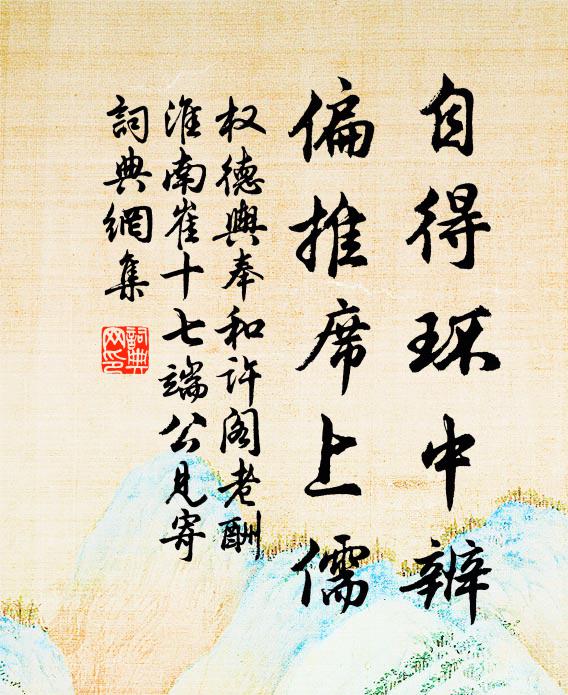 自得环中辨
偏推席上儒
权德舆奉和许阁老酬
淮南崔十七端公见寄
詞典網集
詞典
网印